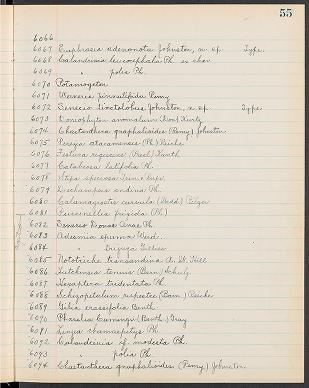 55
6066
6067 Euphrasia adenonota Johnston, n. sp. Type.
6068 Calandrinia leucocephala Ph. ex char
6069 " polia Ph.
6070 Potamogeton
6071 Werneria pinnatifida Remy
6072 Senecio Johnston, n. sp. Type.
6073 Doniophyton anomalum (Don) Kurtz
6074 Chaetanthera gnaphalioides (Remy) Johnston
6075 Perezia atacamensis (Ph.) Reiche
6076 Festuca (Presl) Kunth
6077 Catabrosa latifolia Ph.
6078 Stipa speciosa Trin & Rupr.
6079 Deschampsia andina Ph.
6080 Calamagrostis (Wedd.) Pilger
6081 Puccinellia frigida (Ph.)
6082 Senecio Ph.
6083 Adesmia Werd.
6084 " Gillies
6085 Nototriche transandina A. W. Hill
6086 Hutchinsia tenuis (Barn) Schulz
6087 Hexaptera tridentata Ph.
6088 Schizopetalum rupestre (Barn.) Reiche
6089 Gilia crassifolia Benth
6090 Phacelia Cumingii (Benth.) Gray
6091 chamaepitys Ph.
6092 Calandrinia cf. modesta Ph.
6093 " polia Ph.
6094 Chaetanthera gnaphalioides (Remy) Johnston